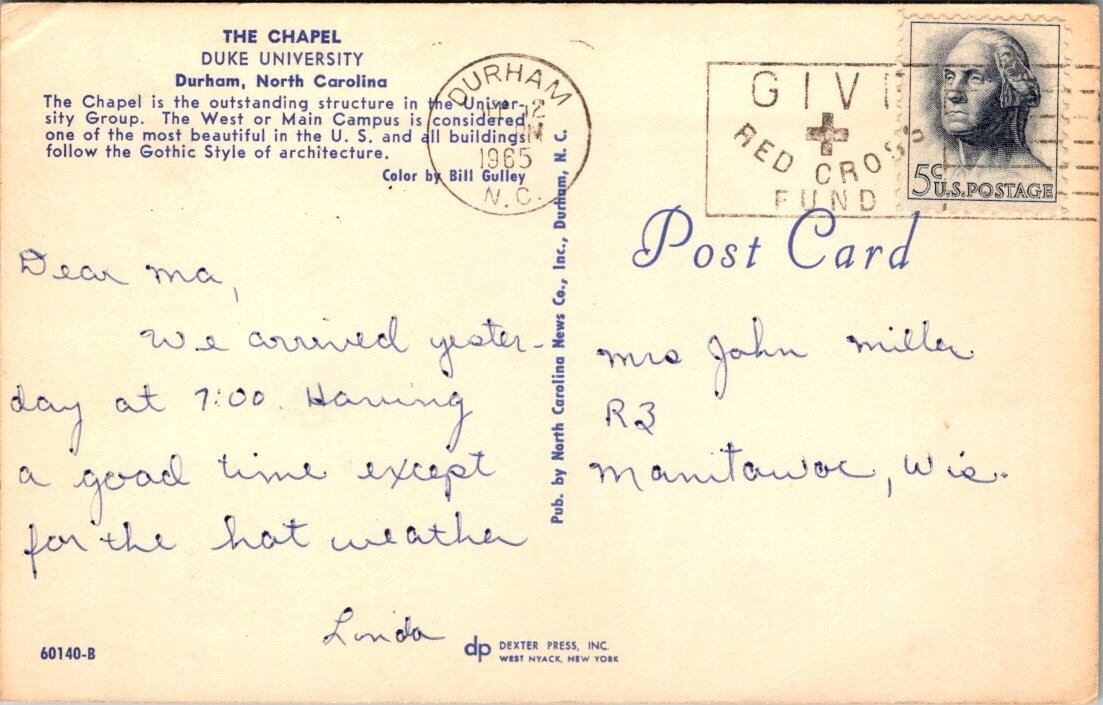 THE CHAPEL
DUKE UNIVERSITY
Durham, North Carolina
The Chapel is the outstanding structure in the Univer-
sity Group. The West or Main Campus is considered
one of the most beautiful in the U. S. and all buildings
follow the Gothic Style of architecture.
Color by Bill Gulley
DURHAM
12
1965
N.C.
GIV
RED CROSS
FUND
5c U.S. POSTAGE
Post Card
Dear Ma,
We arrived yester-
day at 7:00. Having
a good time except
for the hot weather
Linda
Pub. by North Carolina News Co., Inc., Durham, N. C.
Mrs John Miller
R3
Manitowoc, Wis.
60140-B
dp DEXTER PRESS, INC.
WEST NYACK, NEW YORK